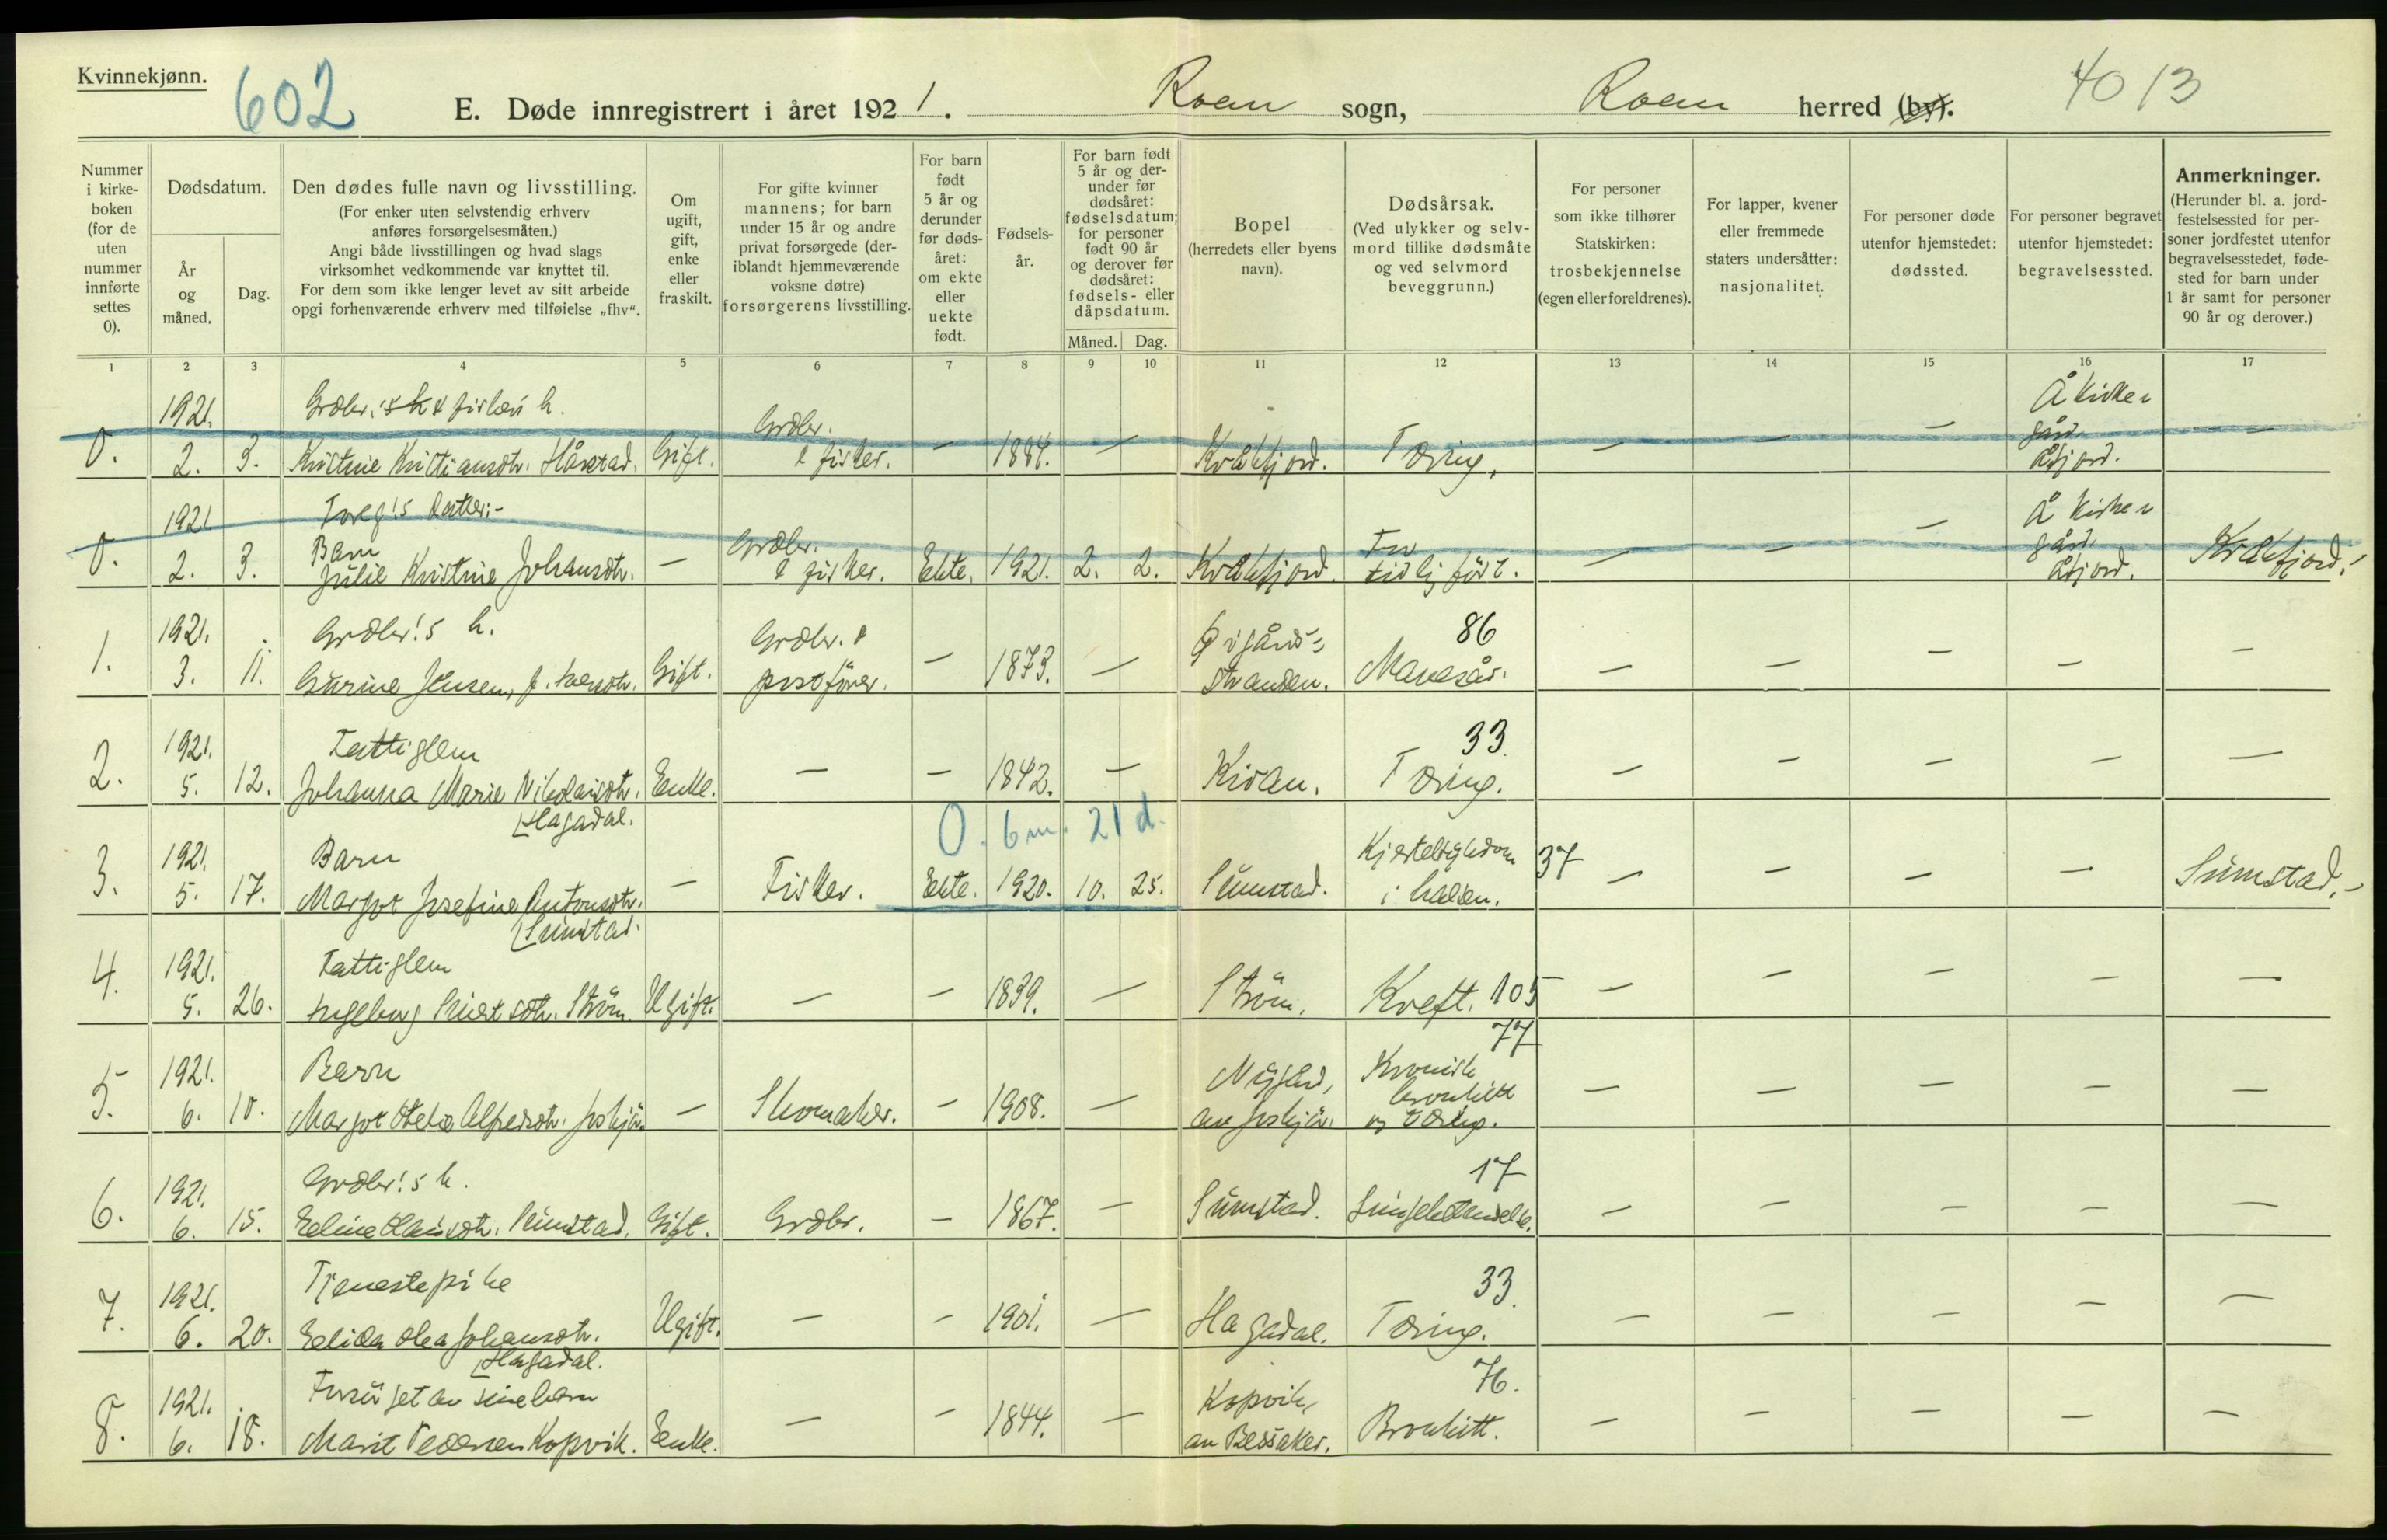 Kvinnekjønn.
602
E. Døde innregistrert i året 1921. Roan sogn, Roan herred (by).
4013
Nummer i kirkeboken (for de uten nummer innførte settes 0).
Dødsdatum.
År og måned.
Dag.
Den dødes fulle navn og livsstilling.
(For enker uten selvstendig erhverv anføres forsørgelsesmåten.)
Angi både livsstillingen og hvad slags virksomhet vedkommende var knyttet til.
For dem som ikke lenger levet av sitt arbeide opgi forhenværende erhverv med tilføielse „fhv“.
Om ugift, gift, enke eller fraskilt.
For gifte kvinner mannens; for barn under 15 år og andre privat forsørgede (deriblandt hjemmeværende voksne døtre) forsørgerens livsstilling.
For barn født 5 år og derunder før dødsåret: om ekte eller uekte født.
Fødselsår.
For barn født 5 år og derunder før dødsåret: fødselsdatum; for personer født 90 år og derover før dødsåret: fødsels- eller dåpsdatum.
Måned. Dag.
Bopel
(herredets eller byens navn).
Dødsårsak.
(Ved ulykker og selvmord tillike dødsmåte og ved selvmord beveggrunn.)
For personer som ikke tilhører Statskirken: trosbekjennelse (egen eller foreldrenes).
For lapper, kvener eller fremmede staters undersåtter: nasjonalitet.
For personer døde utenfor hjemstedet: dødssted.
For personer begravet utenfor hjemstedet: begravelsessted.
Anmerkninger.
(Herunder bl. a. jordfestelsessted for personer jordfestet utenfor begravelsesstedet, fødested for barn under 1 år samt for personer 90 år og derover.)
1 2 3 4 5 6 7 8 9 10 11 12 13 14 15 16 17
1921. Gift. Grdbr. & fisker. — 1884. — Tæring, — — — Å kirke gård Åfjord. —
0. 2. 3. Kristine Kristiansdtr. Hårstad.
1921 Barn
0. 2. 3. Julie Kristine Johansdtr. — Grdbr. & fisker. Ekte. 1921. 2. 2. For tidlig født. — — — Å kirke gård. Åfjord.
1921. Grdbr.'s h. Grdbr. & 86
1. 3. 11. Gurine Jensen, Gift. postfører. — 1873. — stranden. Mavesår. — — — — —
1921. Fattiglem 33
2. 5. 12. Johanna Marie Nikolaisdtr. Hagadal. Enke. — — 1842. — Kiran. Tæring. — — — — —
0. 6 m. 21 d.
1921. Barn Kjertelsygdom 37
3. 5. 17. Margot Josefine Antonsdtr. Sumstad. — Fisker. Ekte. 1920. 10. 25. Sumstad. i halsen. — — — — Sumstad.
1921. Fattiglem
4. 5. 26. Ingeborg Strøm. Ugift. — — 1839. — Strøm. Kreft. 105 — — — — —
1921. Barn 77
5. 6. 10. Margot Alfredsdtr. — Skomaker. — 1908. — Kronisk bronkitt og tæring. — — — — —
1921. Grdbr.'s h. 17
6. 6. 15. Eline Sumstad. Gift. Grdbr. — 1867. — Sumstad. Lungebetendelse. — — — — —
1921. Tjenestepike 33.
7. 6. 20. Elida Olea Johansdtr. Hagadal. Ugift. — — 1901. — Hagadal. Tæring. — — — — —
1921. Forsørget av sine barn 76.
8. 6. 18. Marit Pedersen Kopvik. Enke. — — 1844. — Kopvik, av Bessaker. Bronkitt. — — — — —